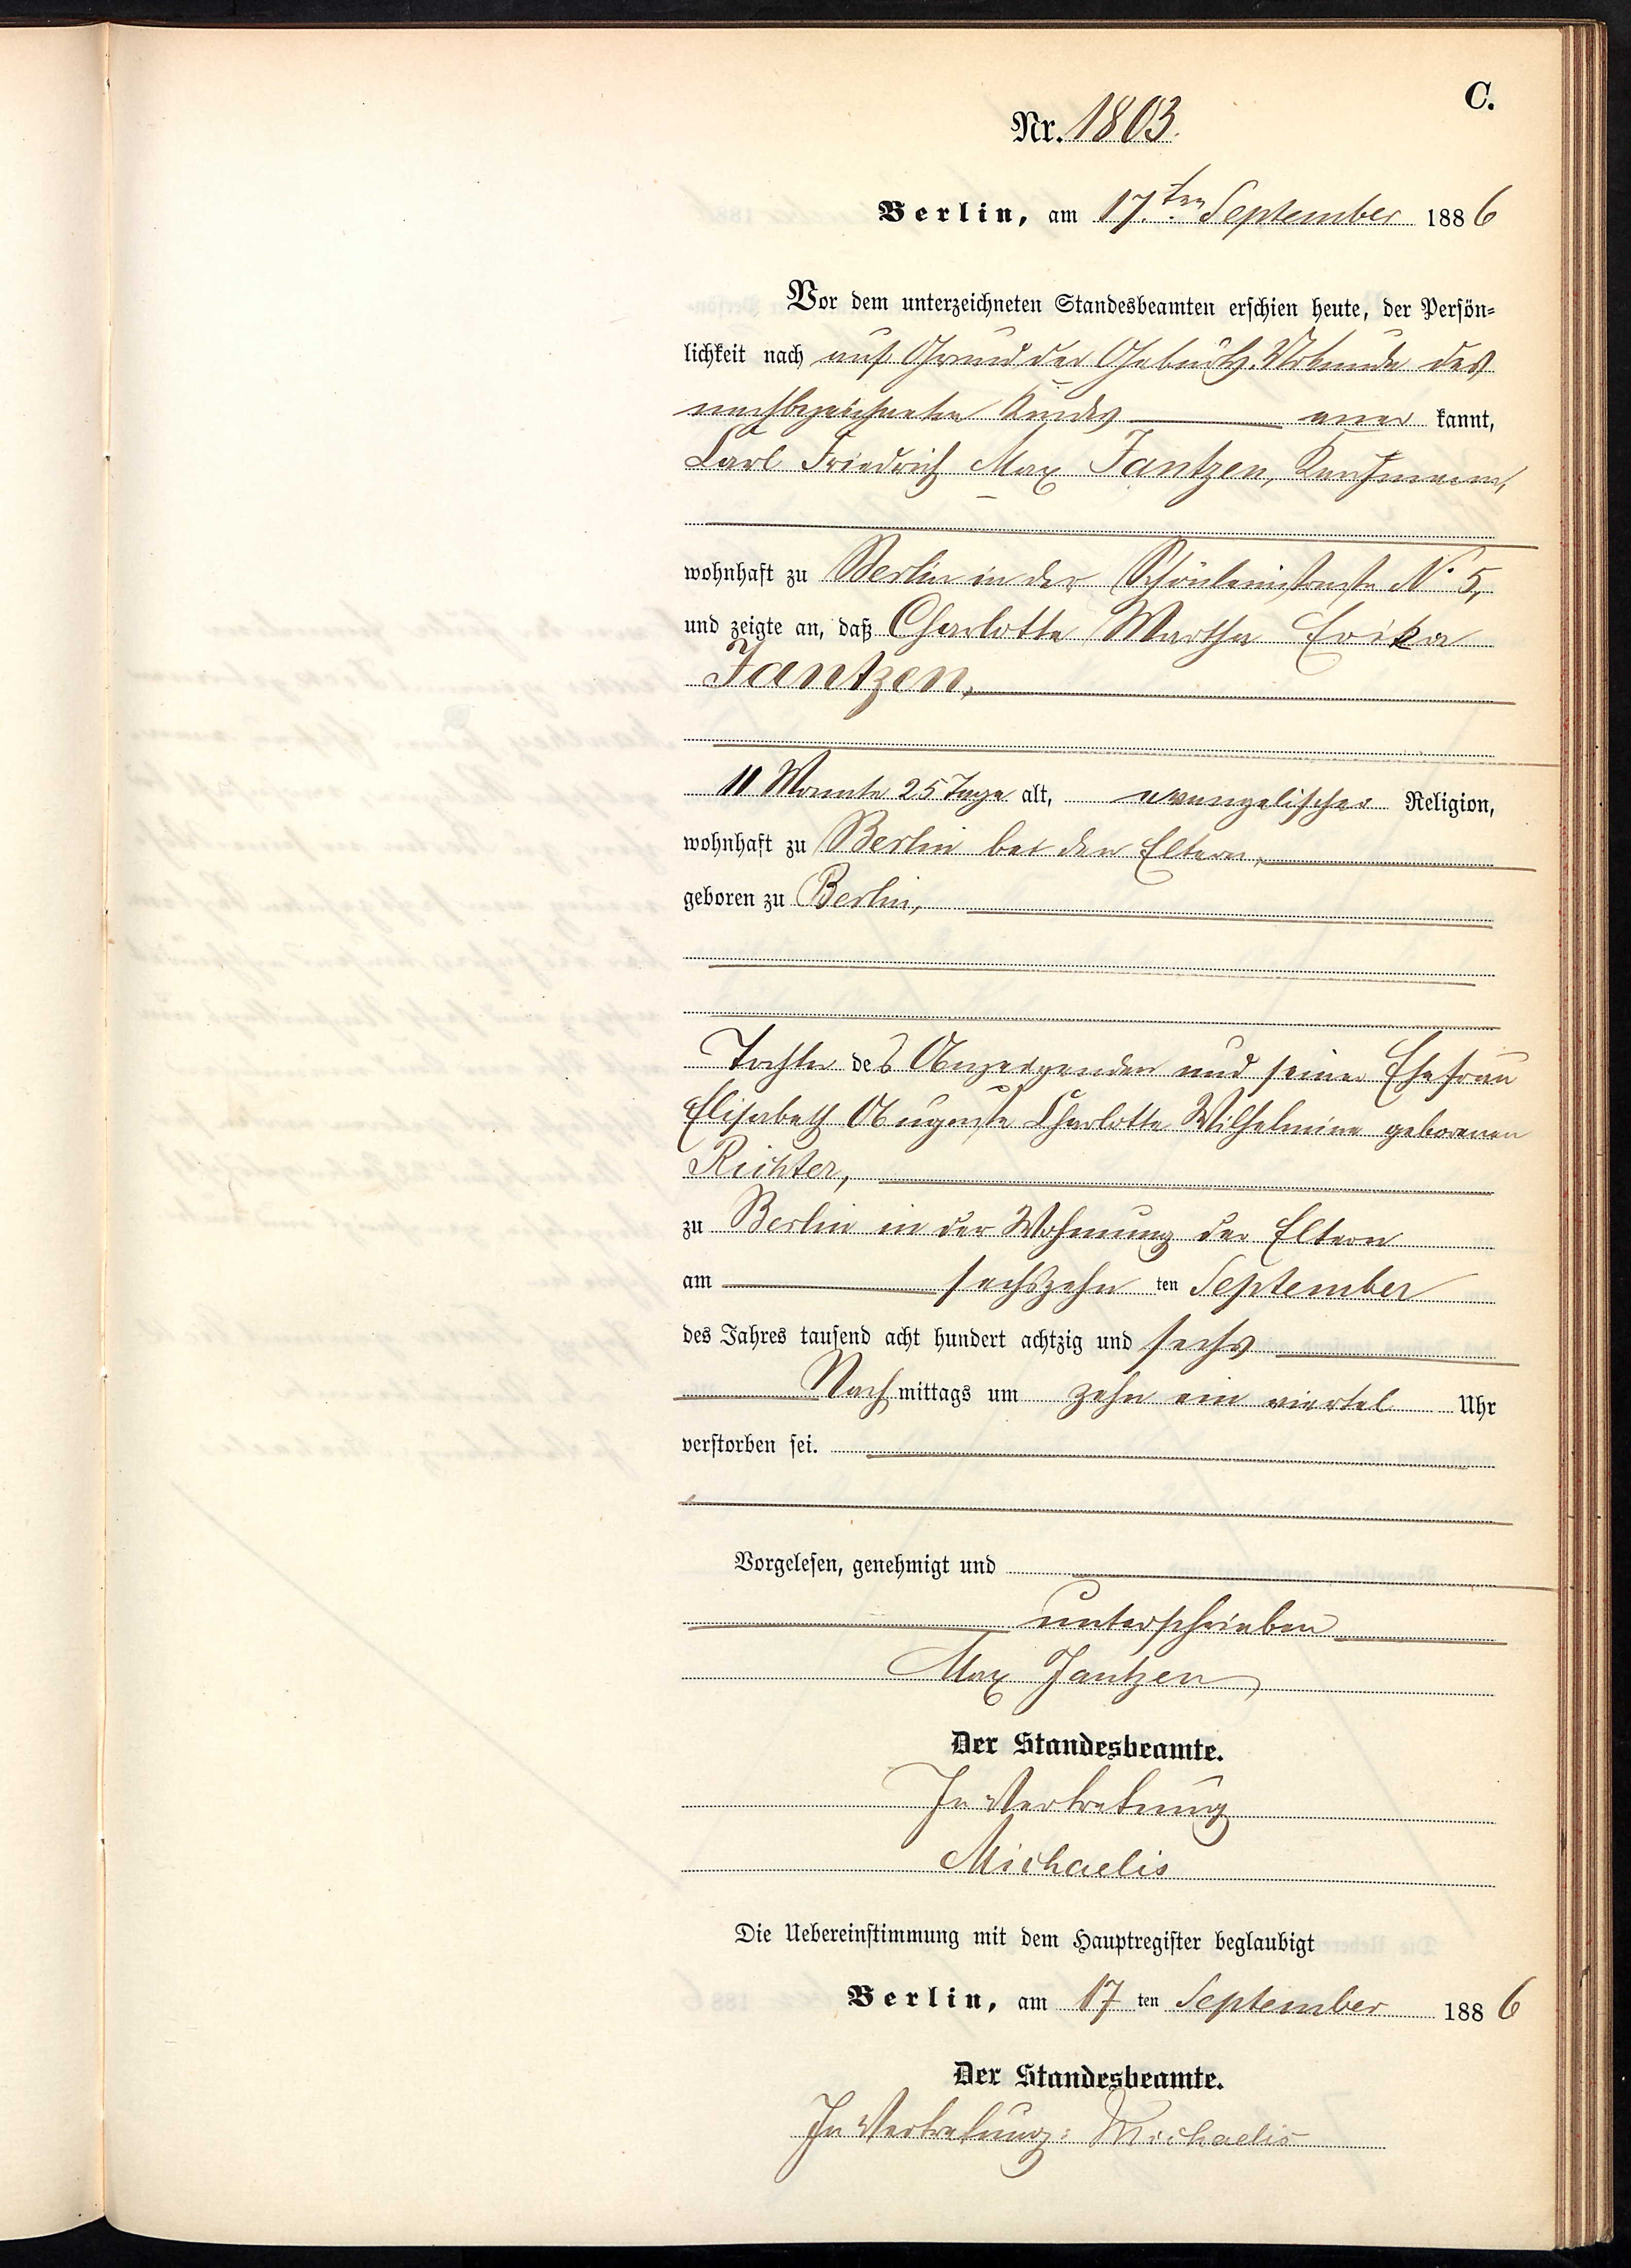 C.
Nr. 1803.
Berlin, am 17.ten September 1886
Vor dem unterzeichneten Standesbeamten erschien heute, der Persön-
lichkeit nach auf Grund der Geburts-Urkunde des
nachbezeichneten Kindes aner kannt,
Carl Friedrich Max Jantzen, Kaufmann,
wohnhaft zu Berlin in der Schönleinstraße No 5,
und zeigte an, daß Charlotte Martha Erika
Jantzen,
11 Monate 25 Tage alt, evangelischer Religion,
wohnhaft zu Berlin bei den Eltern,
geboren zu Berlin,
Tochter des Anzeigenden und seiner Ehefrau
Elisabeth Auguste Charlotte Wilhelmine geborenen
Richter,
zu Berlin in der Wohnung der Eltern
am sechszehn ten September
des Jahres tausend acht hundert achtzig und sechs
Nach mittags um zehn ein viertel Uhr
verstorben sei.
Vorgelesen, genehmigt und
unterschrieben
Max Jantzen
Der Standesbeamte.
In Vertretung
Michaelis
Die Uebereinstimmung mit dem Hauptregister beglaubigt
Berlin, am 17 ten September 1886
Der Standesbeamte.
In Vertretung: Michaelis